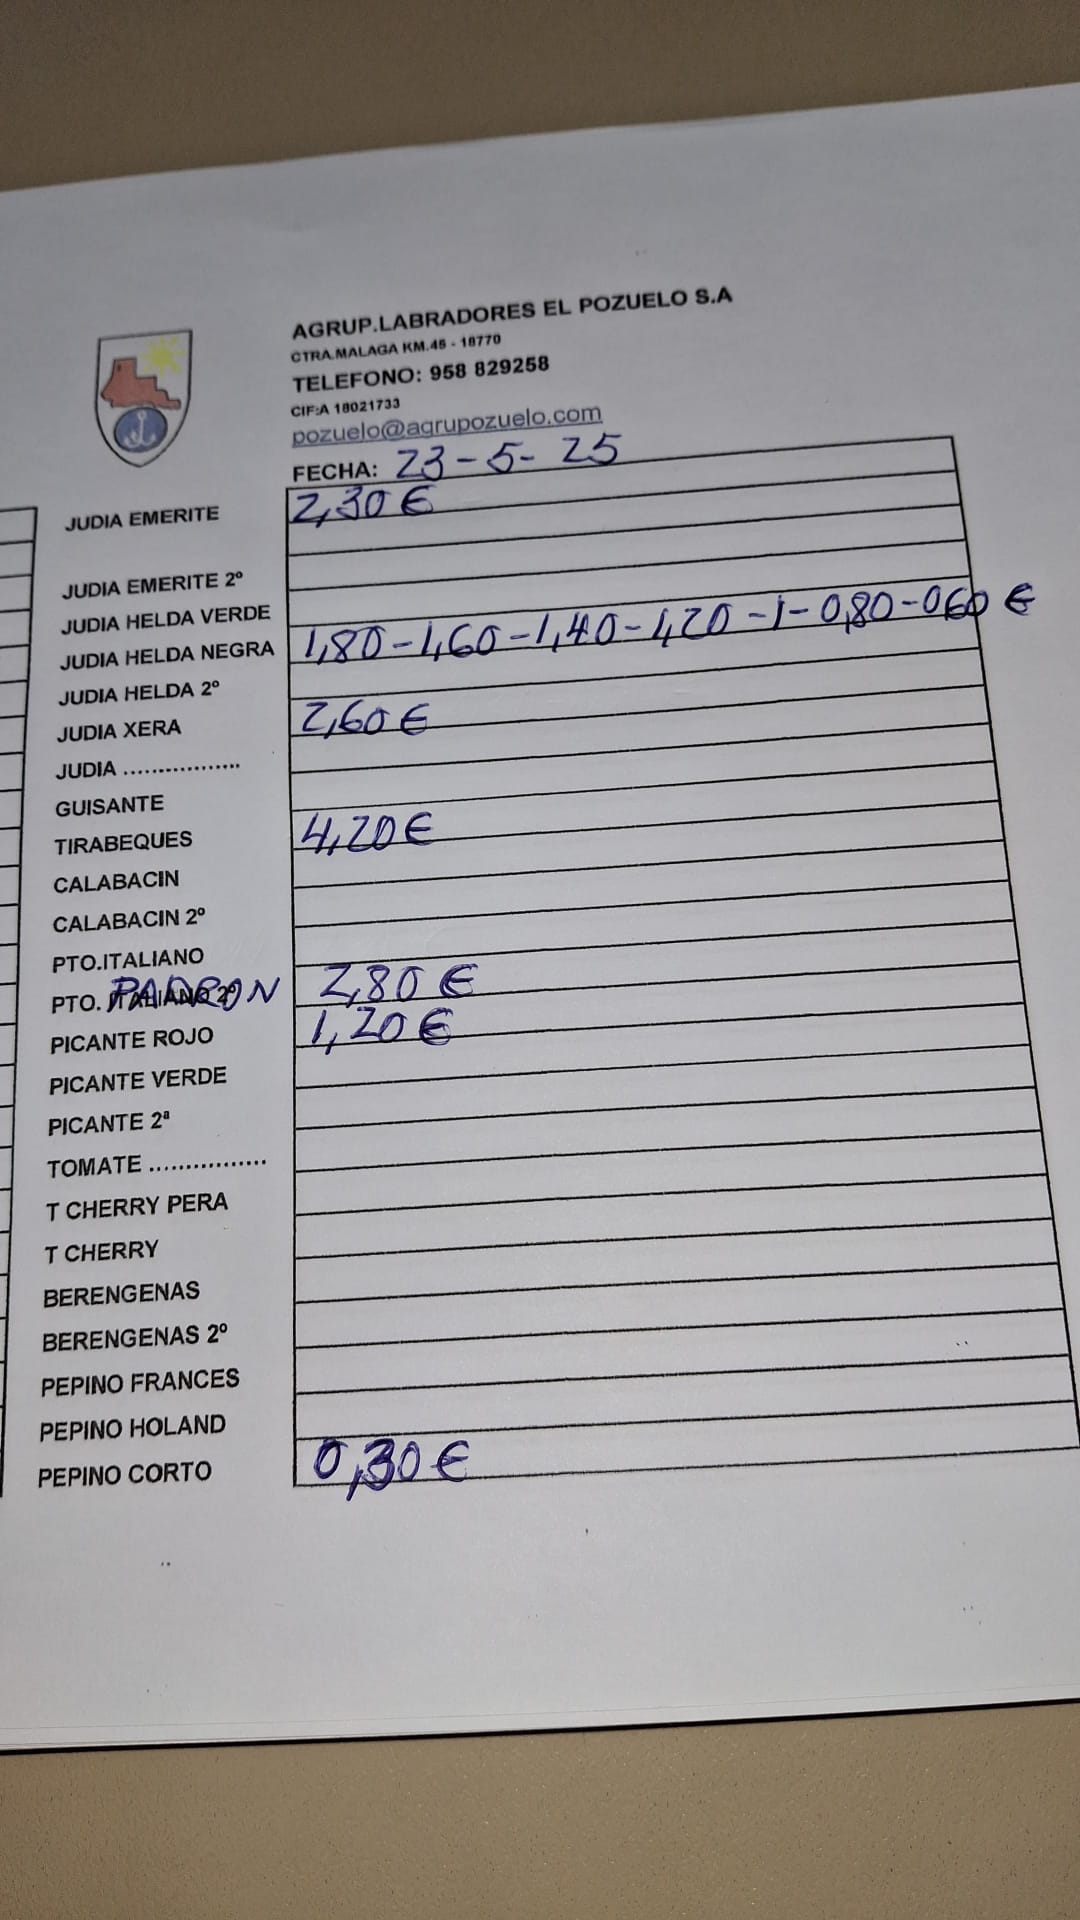 AGRUP.LABRADORES EL POZUELO S.A
CTRA.MALAGA KM.45 - 18770
TELEFONO: 958 829258
CIF:A 18021733
pozuelo@agrupozuelo.com
FECHA: 23-5-25
JUDIA EMERITE 2,30 €
JUDIA EMERITE 2º
JUDIA HELDA VERDE
JUDIA HELDA NEGRA 1,80-1,60-1,40-1,20-1-0,80-0,60 €
JUDIA HELDA 2º
JUDIA XERA 2,60 €
JUDIA .................
GUISANTE
TIRABEQUES 4,20 €
CALABACIN
CALABACIN 2º
PTO.ITALIANO
PTO. ITALIANO 2º PADRON 2,80 €
PICANTE ROJO 1,20 €
PICANTE VERDE
PICANTE 2ª
TOMATE .................
T CHERRY PERA
T CHERRY
BERENGENAS
BERENGENAS 2º
PEPINO FRANCES
PEPINO HOLAND
PEPINO CORTO 0,30 €